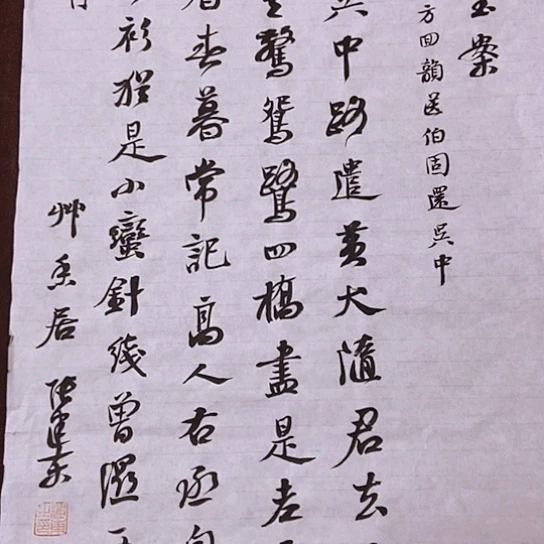 玉案
方回韻送伯固還吳中
吳中路遣黃犬隨君去
驚鴛鷺四橋盡是老
春暮常記高人右丞句
衫猶是小蠻針綫曾濕
艸香居